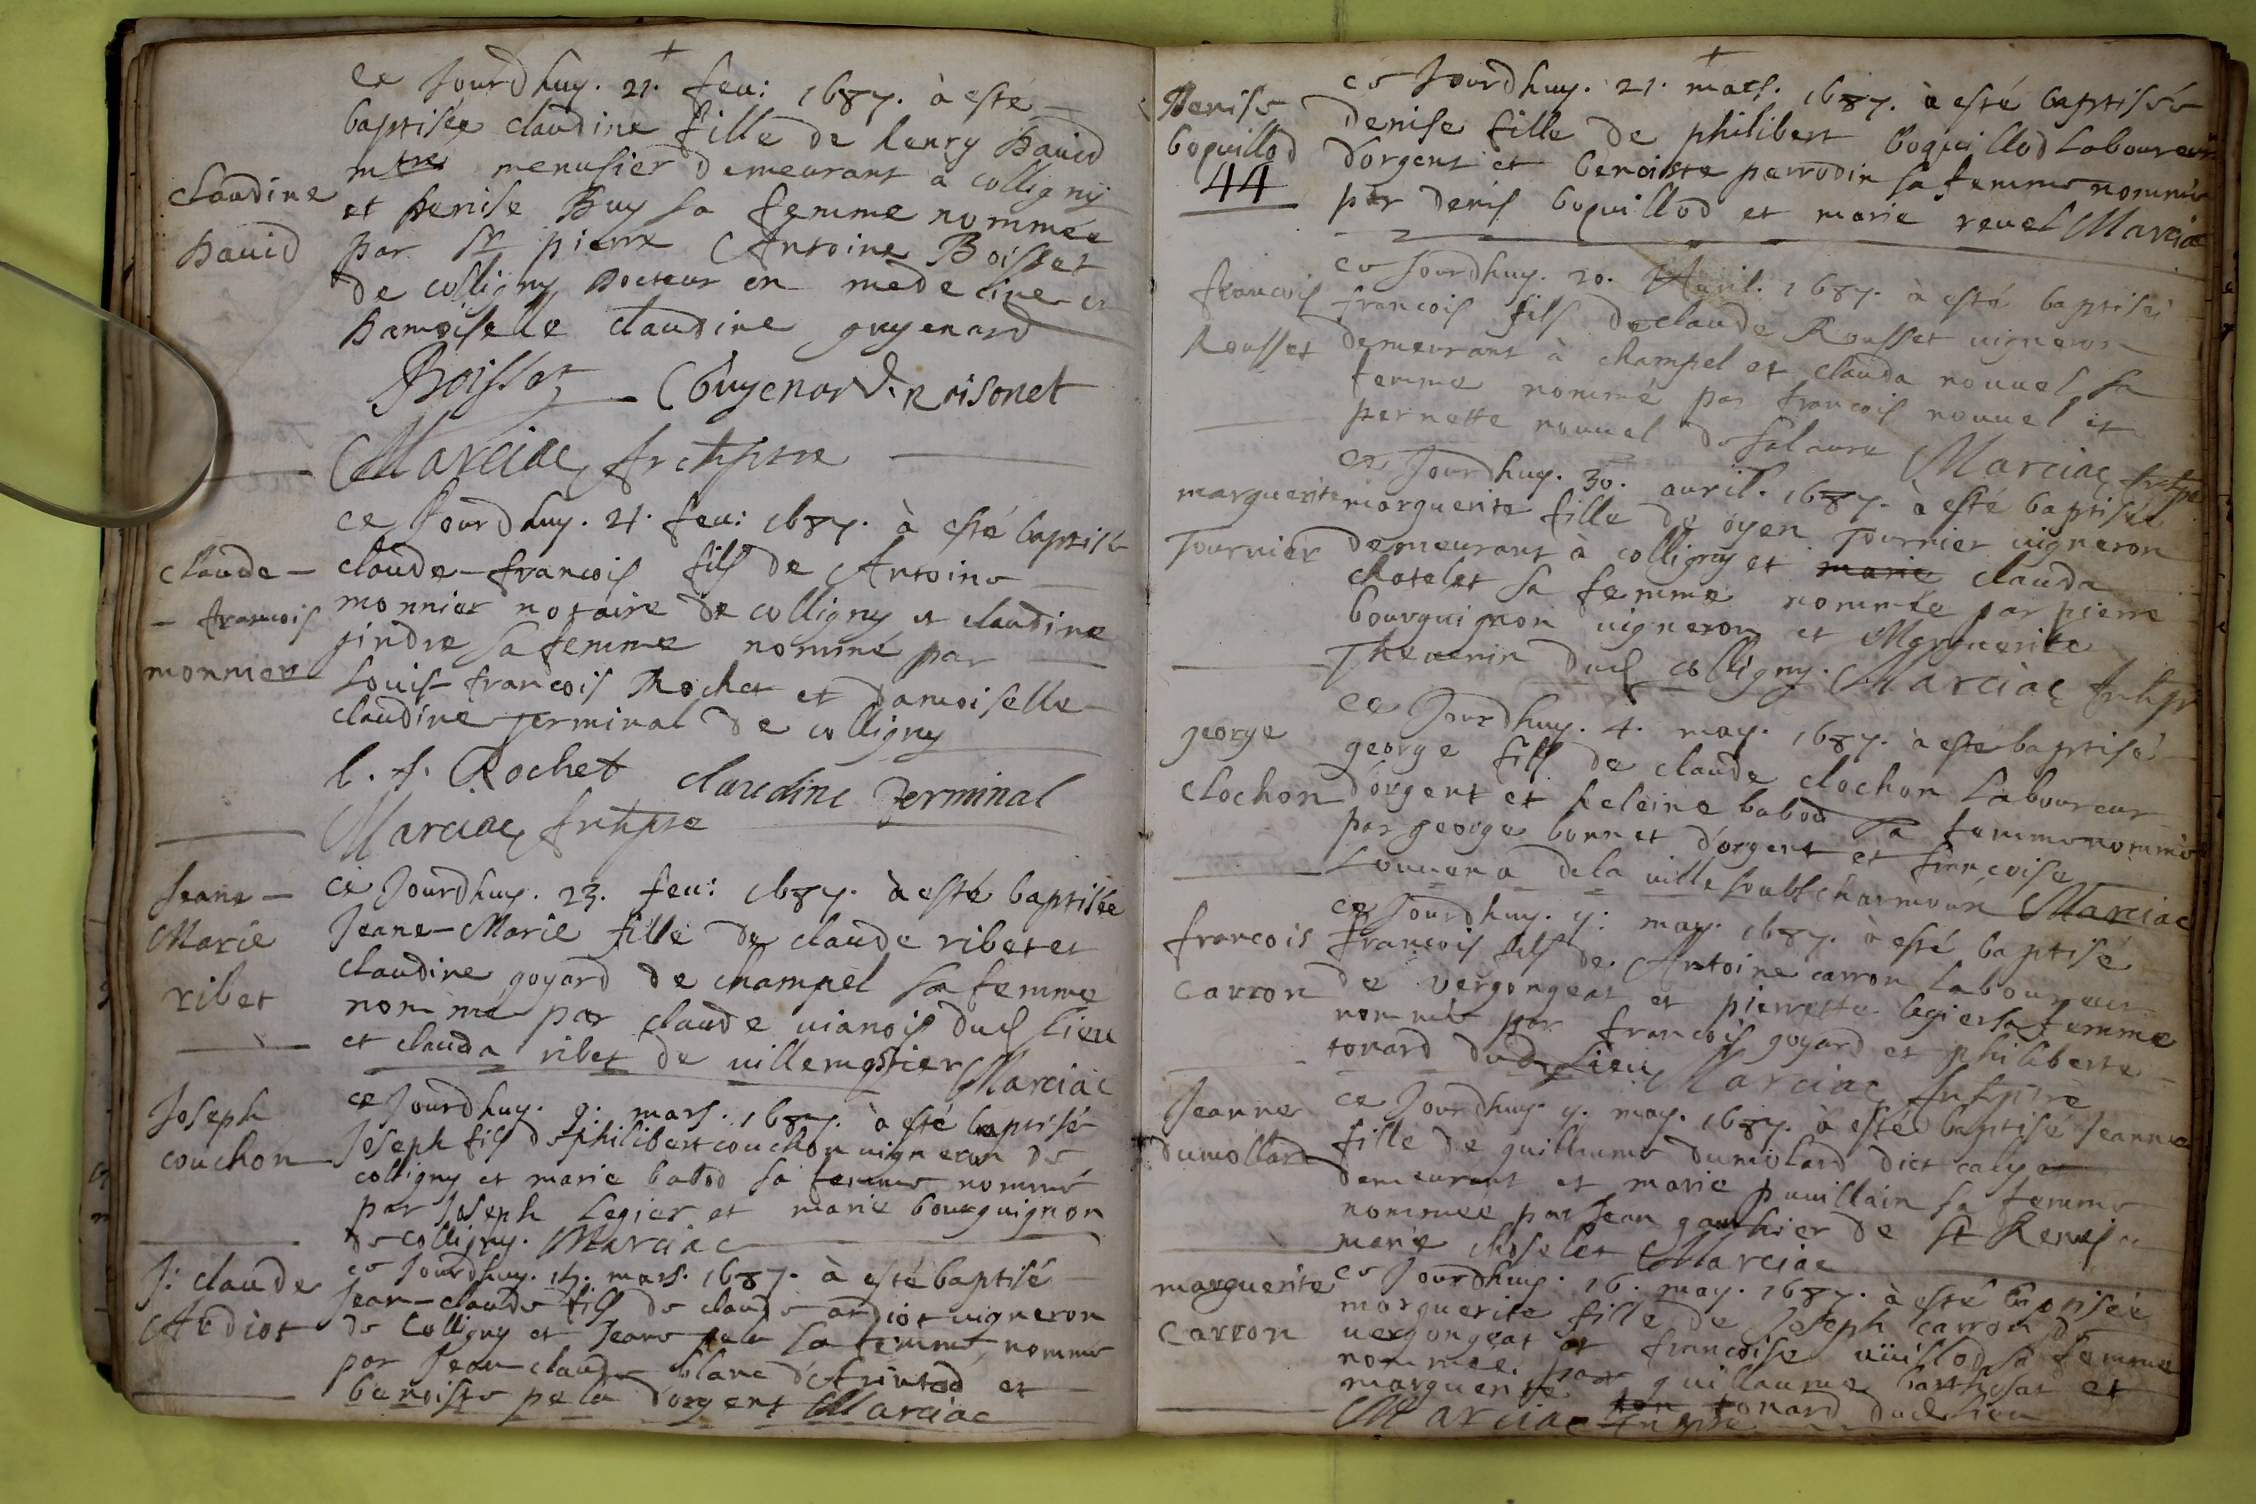 ce Jourdhuy. 21. feu: 1687. à esté
baptisée claudine fille de henry Dauid
mtre menusier demeurant a colligny
claudine
et Denise Buy sa femme nommée
Dauid
par Sr pierre Antoine Boisset
de colligny Docteur en medecine et
Damoiselle claudine guyenard
Boisset C Guyenard. n oisonet
Marciac Archpre
ce Jourdhuy. 21. feu: 1687. à esté baptisé
claude-
claude-francois fils de Antoine
- francois
monnier notaire de colligny et claudine
monnier
jindre sa femme nommé par
Louis-francois Rochet et damoiselle
claudine jerminal de colligny
l. f. Rochet claudine Jerminal
Marciac Archpre
Jeane-
ce Jourdhuy. 23. feu: 1687. à esté baptisée
Marie
Jeane-Marie fille de claude ribet et
ribet
claudine goyard de champel sa femme
nommé par claude uianois dud lieu
et clauda ribet de uillemostier Marciac
Joseph
ce Jourdhuy. 9. mars. 1687. à esté baptisé
couchon
Joseph fils de philibert couchon uigneron de
colligny et marie babod sa femme nommé
par Joseph Legier et marie bourguignon
de colligny. Marciac
J: claude
ce Jourdhuy. 14. mars. 1687. à esté baptisé
Ardiot
Jean-claude fils de claude ardiot uigneron
de Colligny et Jeane pela sa femme, nommé
par Jean claude blanc d'Arintod et
benoiste pela d'orgent Marciac
Denise
ce Jourdhuy. 21. mars. 1687. à esté baptisée
boquillod
denise fille de philibert boquillod Laboureur
44
d'orgent et benoiste perrodin sa femme nommée
par denis boquillod et marie reuel Marciac
francois
ce Jourdhuy. 20. Auril. 1687. à esté baptisé
Rousset
francois fils de claude Rousset uigneron
demeurant à champel et clauda nouuel sa
femme nommé par francois nouuel et
pernette nouuel de Marciac Archpre
ce Jourdhuy. 30. auril. 1687. à esté baptisée
marguerite
marguerite fille de oyen Tournier uigneron
Tournier
demeurant à colligny et marie clauda
chatelet sa femme nommée par pierre
bourguignon uigneron et Marguerite
Theuenin dud colligny. Marciac Archpr
george
ce Jourdhuy. 4. may. 1687. à esté baptisé
clochon
george fils de claude clochon Laboureur
d'orgent et heleine babod sa femme nommé
par george bonnet d'orgent et francoise
Louuena dela uille soubs charmoux Marciac
francois
ce Jourdhuy. 9: may. 1687. à esté baptisé
carron
francois fils de Antoine carron Laboureur
de vergongeat et pierrette legier sa femme
nommé par francois goyard et philiberte
tonard dud Lieu Marciac Archpre
Jeanne
ce Jourdhuy. 9. may. 1687. à esté baptisé Jeanne
dumollard
fille de guillaume dumolard dict
demeurant et marie puuillain sa femme
nommée par Jean gauthier de St Remy et
marie choselet Marciac
marguerite
ce Jourdhuy. 16. may. 1687. à esté baptisée
carron
marguerite fille de Joseph carron de
uergongeat et francoise uuillod sa femme
nommée par guillaume barthosat et
marguerite ton tonard dud Lieu
Marciac Archpre